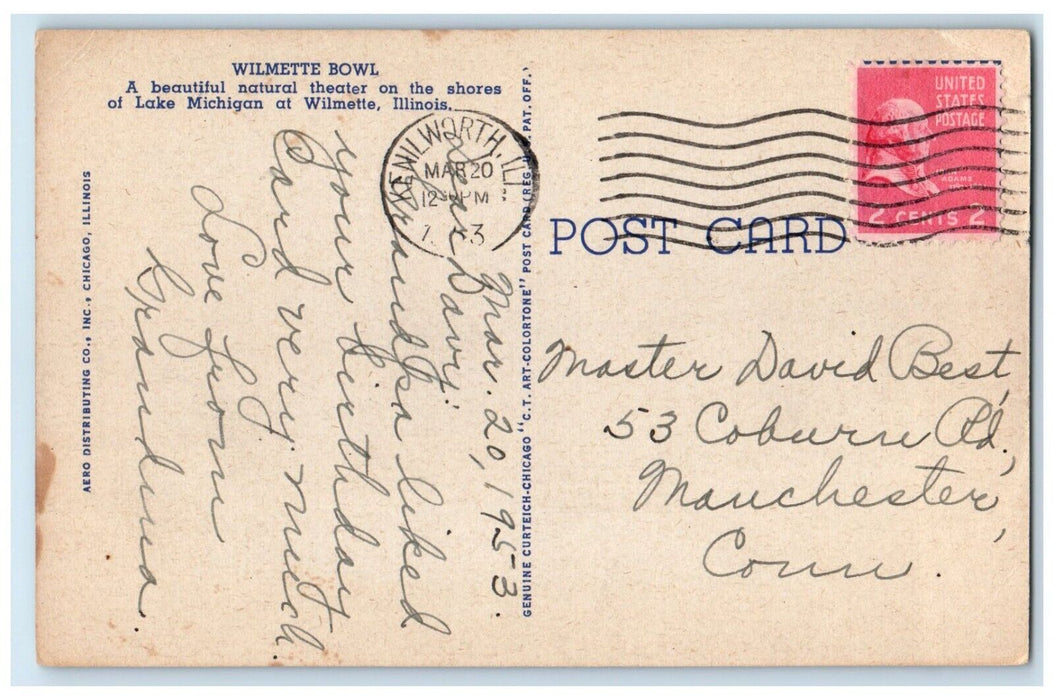 WILMETTE BOWL
A beautiful natural theater on the shores
of Lake Michigan at Wilmette, Illinois.
AERO DISTRIBUTING CO., INC., CHICAGO, ILLINOIS
GENUINE CURTEICH-CHICAGO "C.T. ART-COLORTONE" POST CARD (REG. U.S. PAT. OFF.)
KENILWORTH, ILL.
MAR 20
12 PM
POST CARD
UNITED
STATES
POSTAGE
ADAMS
2 CENTS 2
Mar. 20, 1953.
Dear Davi
Grandpa liked
your birthday
Card very much.
Love from
Grandma.
Master David Best,
53 Coburn Rd,
Manchester,
Conn.